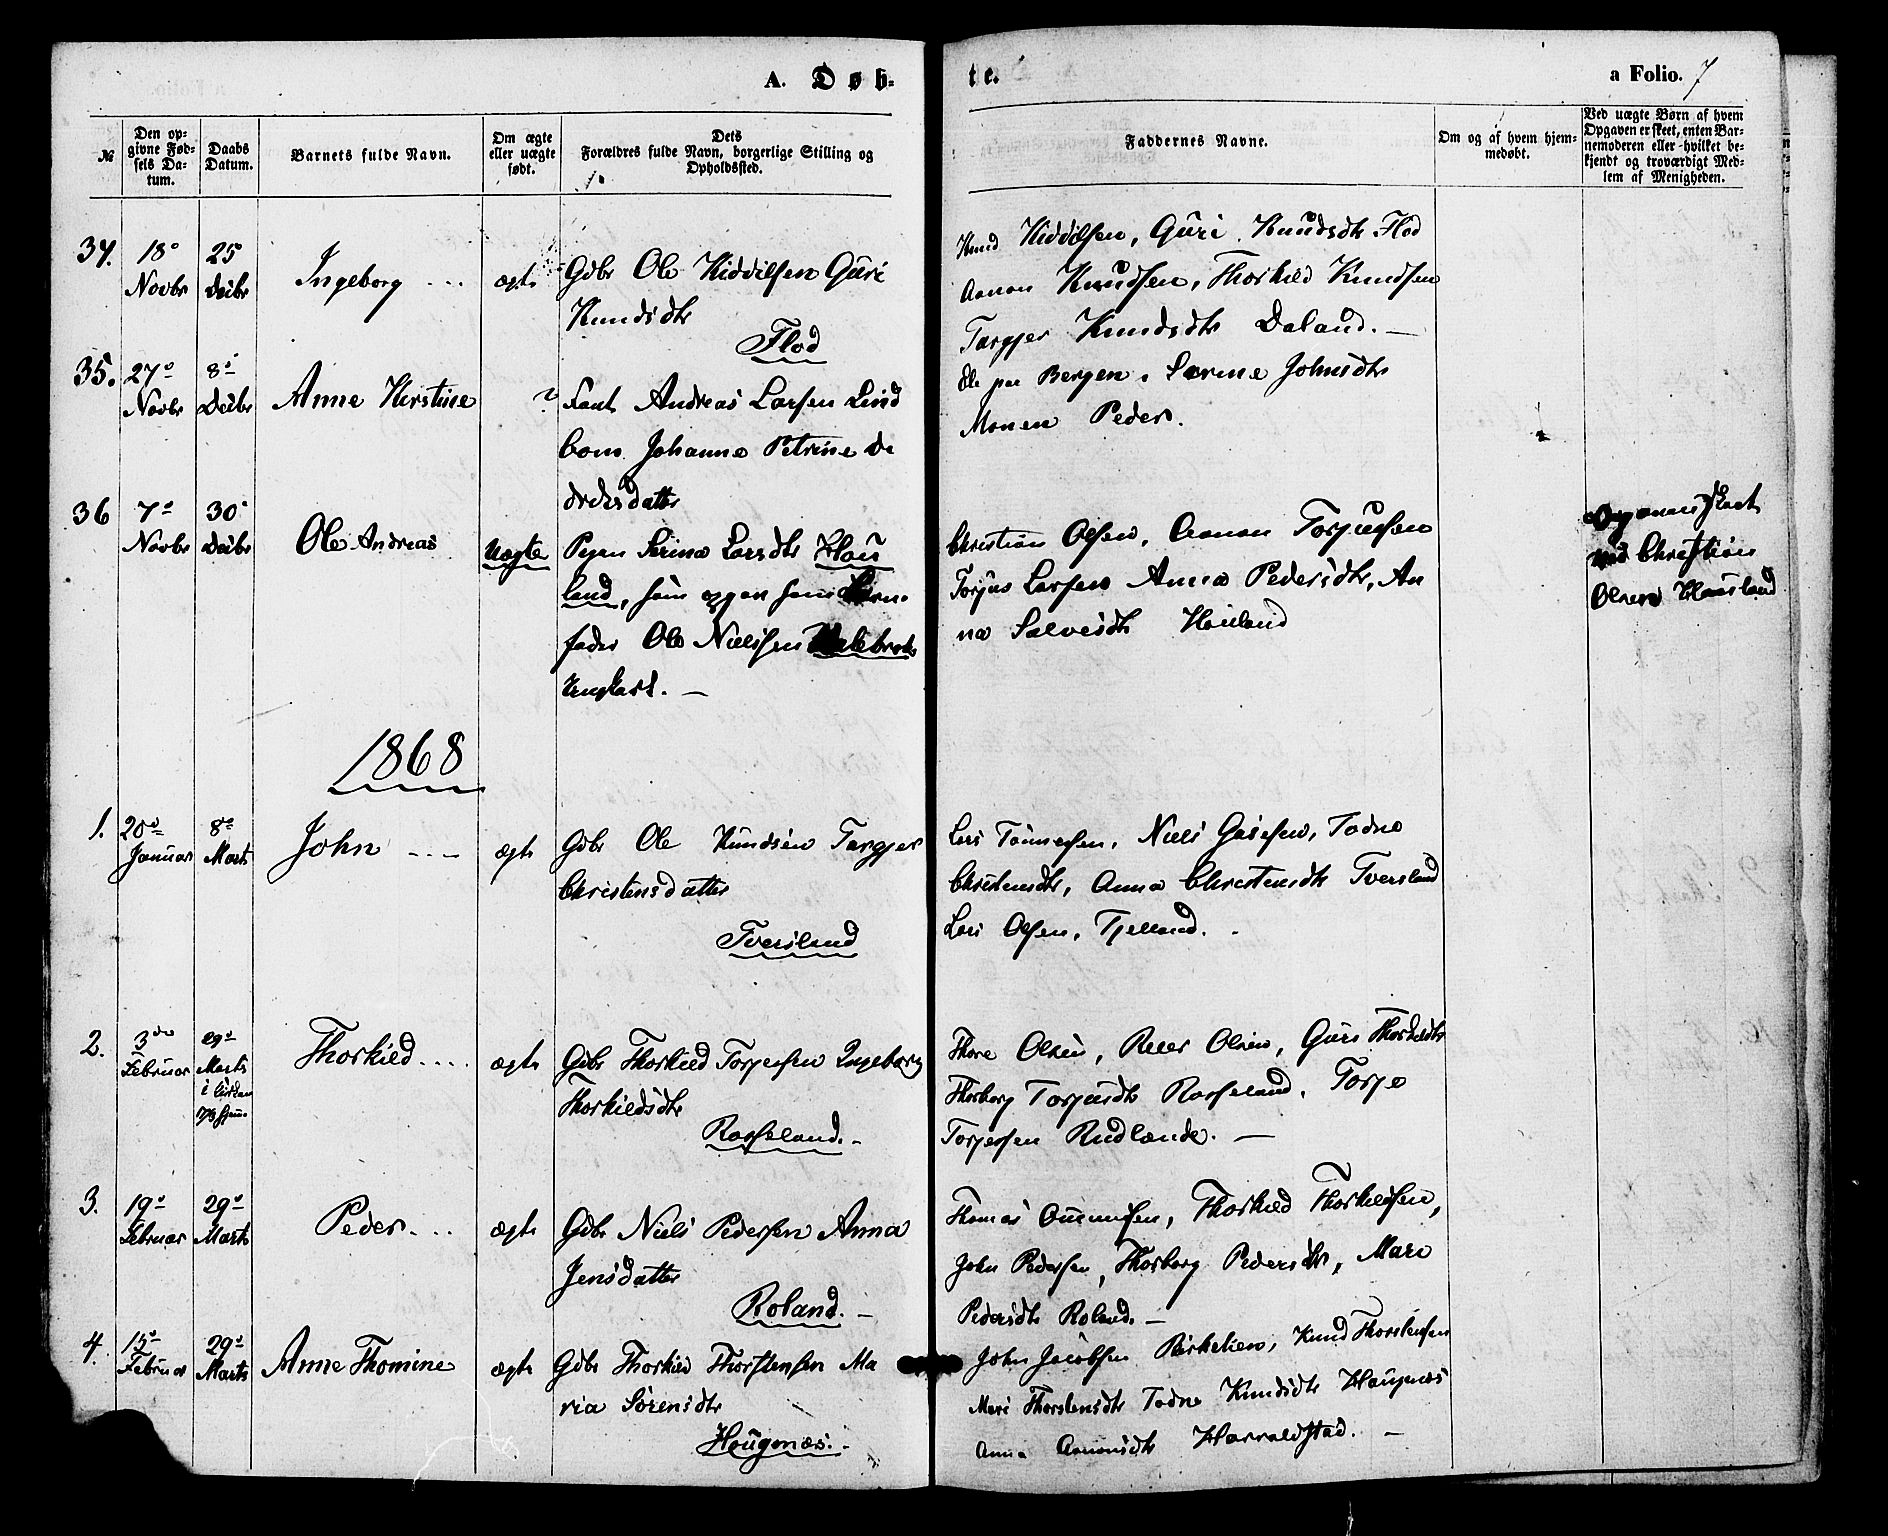 A. Døb-
te.
a Folio. 7
№
Den opgivne Fødsels Datum.
Daabs Datum.
Barnets fulde Navn.
Om ægte eller uægte født.
Dets Forældres fulde Navn, borgerlige Stilling og Opholdssted.
Faddernes Navne.
Om og af hvem hjemmedøbt.
Ved uægte Børn af hvem Opgaven er skeet, enten Barnemoderen eller hvilket bekjendt og troværdigt Medlem af Menigheden.
34. 18 Novbr 25 Decbr Ingeborg ægte
Gdbr Ole Kiddilsen Guri
Knudsdtr
Flod
Knud Kiddilsen, Guri Knudsdtr Flod
Aanon Knudsen, Thorkild Knudsen
Targjer Knudsdtr Daland.
35. 27 Novbr 8 Decbr Anne Kirstine ?
Fant Andreas Larsen Lind
bom Johanne Petrine Di
driksdatter
Ole paa Bergen, Sorine Johnsdtr
Monen Peder.
36 7 Novbr 30 Decbr Ole Andreas Uægte
Pigen Serina Larsdtr Hau
land, som opgav som Barn-
fader Ole Nielsen
Ungkarl.
Christian Olsen, Aanon Torjussen
Torjus Larsen Anna Pedersdtr, An
na Salvesdtr Hauland
Opgaven skeet
ved Christian
Olsen Hauland
1868
1. 20 Januar 8 Marts John ægte
Gdbr Ole Knudsen Targjer
Christensdatter
Tveisland
Lars Tønnesen, Niels Gasesen, Todne
Christensdtr, Anna Christensdtr Tveisland
Lars Olsen, Tjelland.
2. 3 Februar 29 Marts Thorkild ægte
Gdbr Thorkild Torjussen Ingeborg
Thorkildsdtr
Rosseland.
Thore Olsen, Reier Olsen, Guri Thorkildsdtr
Thorborg Torjusdtr Rosseland, Torje
Torjesen Rudlende.
3. 19 Februar 29 Marts Peder ægte
Gdbr Niels Pedersen Anna
Jensdatter
Roland.
Thomas Gunnulsen, Thorkild Thorkildsen,
John Pedersen, Thorborg Pedersdtr, Mari
Pedersdtr Roland.
4. 15 Februar 29 Marts Anne Thomine ægte
Gdbr Thorkild Thorstensen Ma
ria Sørensdtr
Hougnæs.
John Jacobsen Birkelien, Knud Thorstensen
Mari Thorstensdtr Todne Knudsdtr Hougnæs
Anna Aanonsdtr Harraldstad.